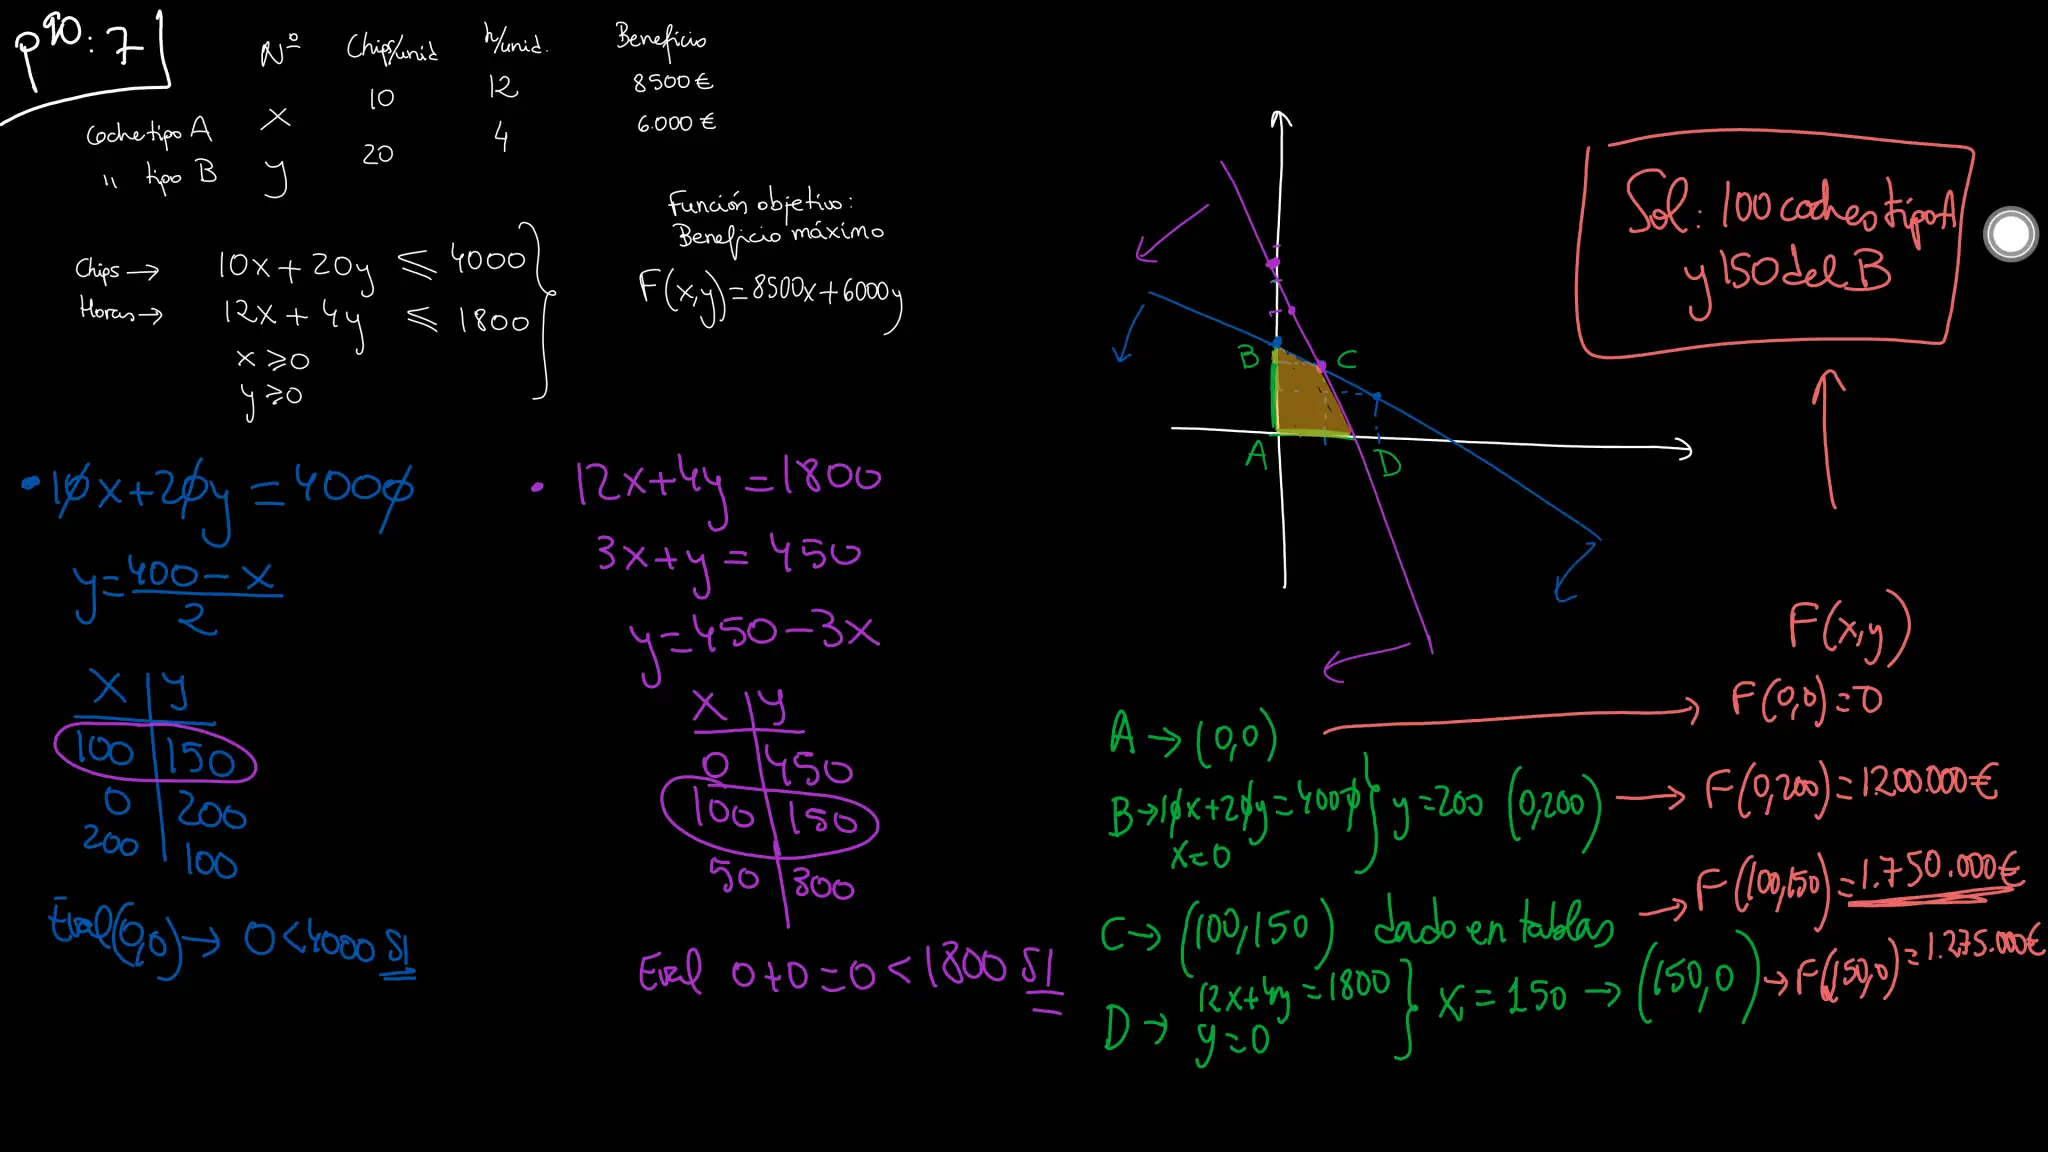 pag: 7
Nº Chips/unid h/unid. Beneficio
Coche tipo A x 10 12 8500€
" tipo B y 20 4 6.000€
Función objetivo:
Beneficio máximo
F(x,y)=8500x+6000y
Chips→ 10x+20y ≤ 4000
Horas→ 12x+4y ≤ 1800
x≥0
y≥0
• 10x+20y=4000
y=400-x/2
x | y
100 | 150
0 | 200
200 | 100
Eval(0,0)→ 0<4000 SI
• 12x+4y=1800
3x+y=450
y=450-3x
x | y
0 | 450
100 | 150
50 | 300
Eval 0+0=0<1800 SI
B C
A D
Sol: 100 coches tipo A
y 150 del B
F(x,y)
A→(0,0) → F(0,0)=0
B→10x+20y=4000 } y=200 (0,200) → F(0,200)=1200.000€
x=0
C→(100,150) dado en tablas → F(100,150)=1.750.000€
D→ 12x+4y=1800 } x=150→(150,0)→F(150,0)=1.275.000€
y=0